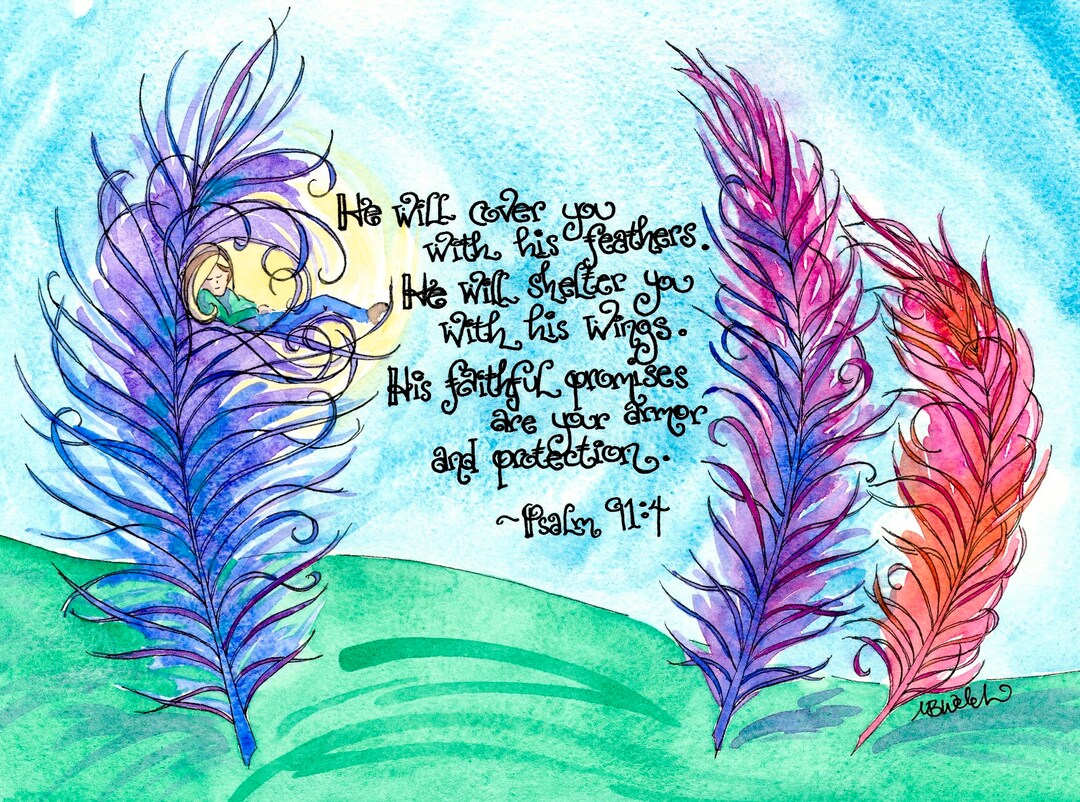 He will cover you
with his feathers.
He will shelter you
with his wings.
His faithful promises
are your armor
and protection.
~Psalm 91:4